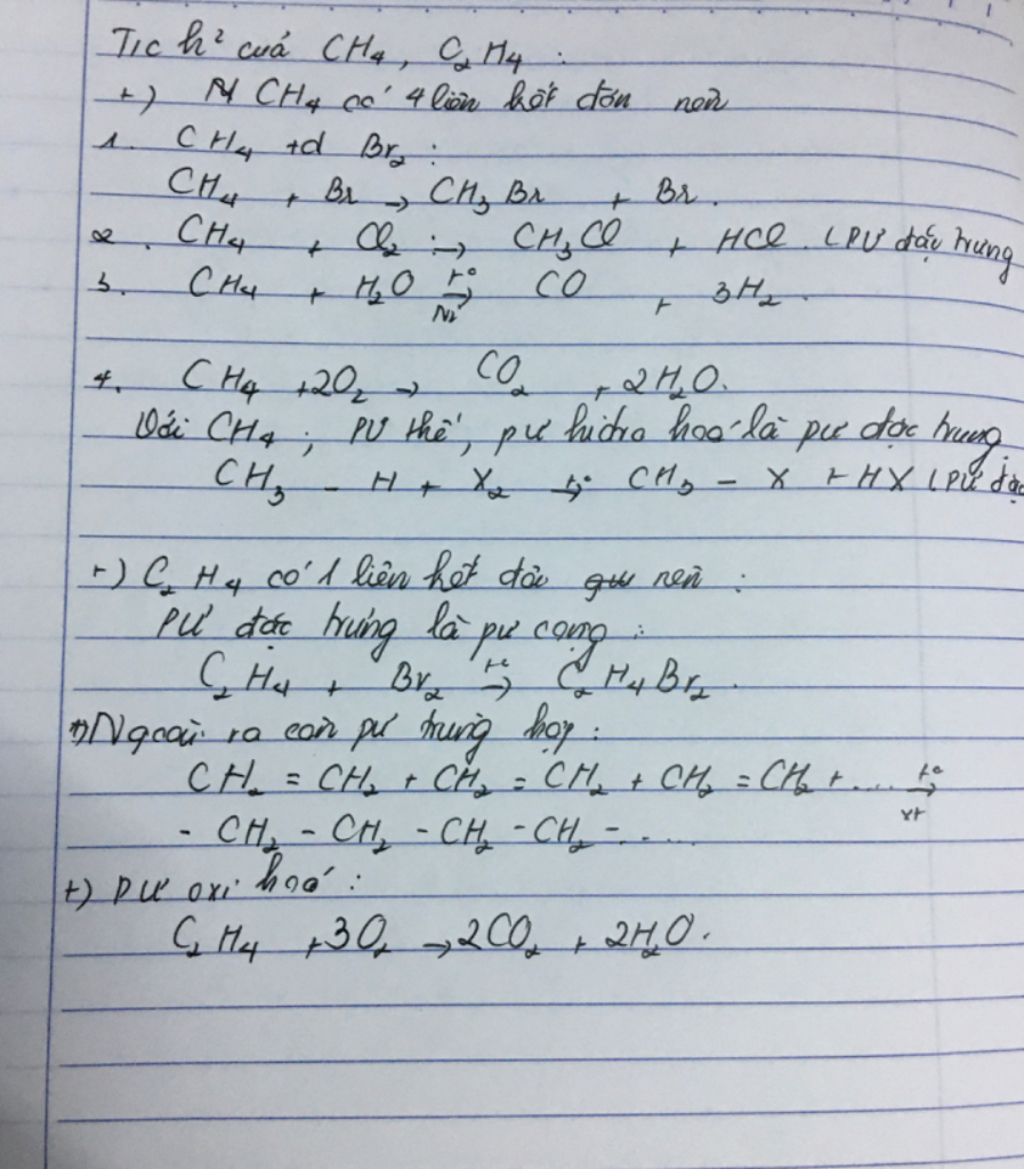 T/c h² cuả CH₄, C₂H₄ :
+) CH₄ có 4 liên kết đơn nên
1. CH₄ + d Br₂ :
CH₄ + Br → CH₃Br + Br.
2. CH₄ + Cl₂ → CH₃Cl + HCl. (PƯ đặc trưng
3. CH₄ + H₂O t° → Ni CO + 3H₂.
4. CH₄ + 2O₂ → CO₂ + 2H₂O.
Với CH₄ ; PƯ thế, pư hidro hoá là pư đặc trưng.
CH₃ - H + X₂ t° → CH₃ - X + HX (PƯ đặc
+) C₂H₄ có 1 liên kết đôi nên :
PƯ đặc trưng là pư cộng :
C₂H₄ + Br₂ t° → C₂H₄Br₂.
+) Ngoài ra còn pư trùng hợp :
CH₂ = CH₂ + CH₂ = CH₂ + CH₂ = CH₂ + .... t° → xt
- CH₂ - CH₂ - CH₂ - CH₂ - .....
+) PƯ oxi hoá :
C₂H₄ + 3O₂ → 2CO₂ + 2H₂O.